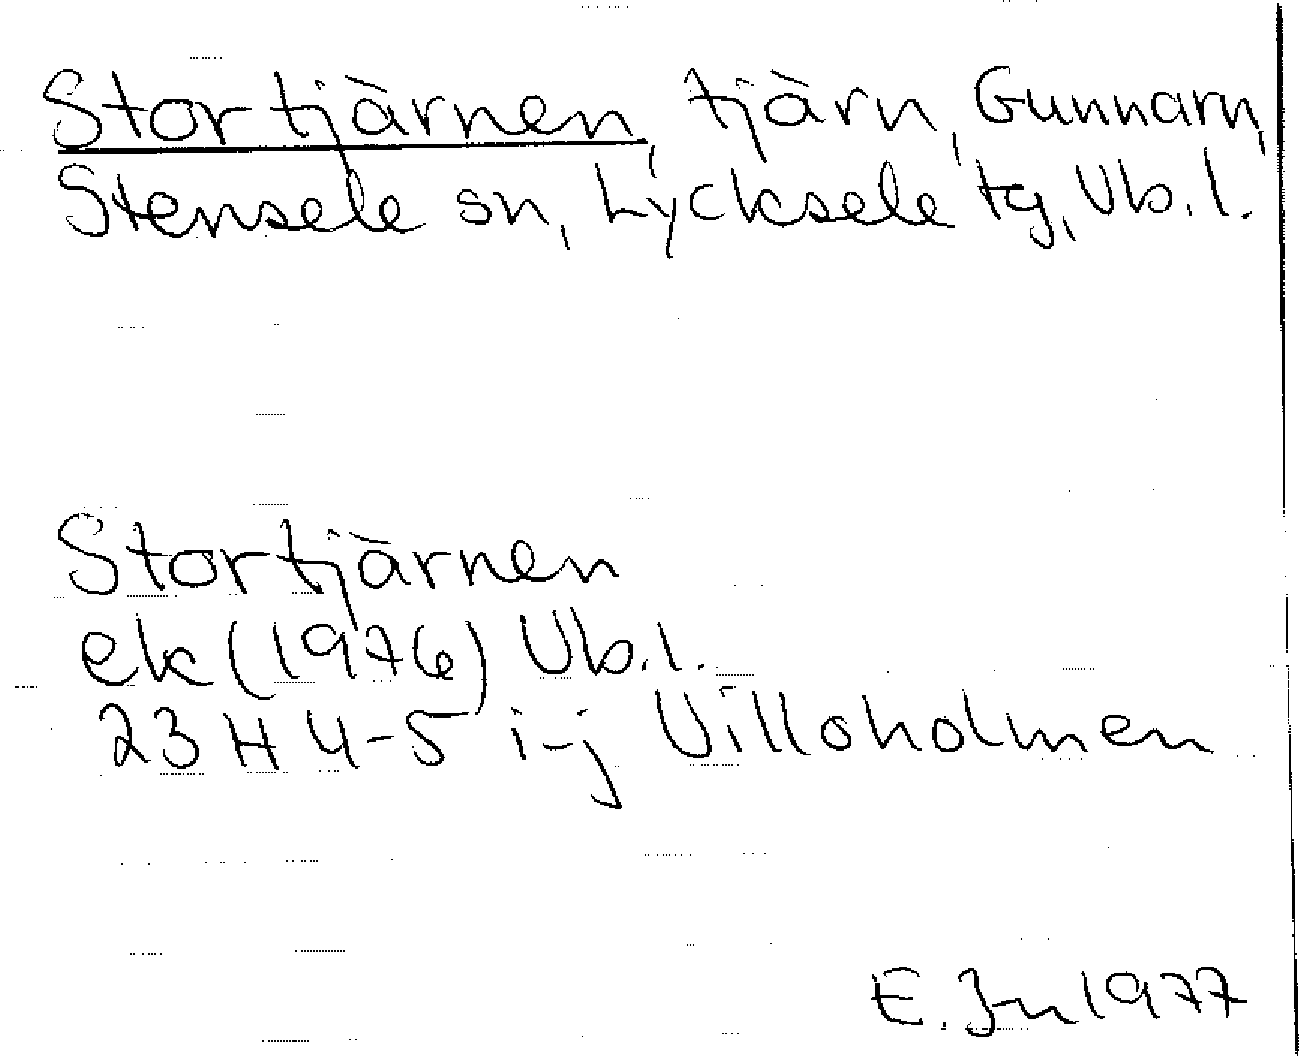 Stortjärnen, tjärn, Gunnarn,
Stensele sn, Lycksele tg, Vb. l.
Stortjärnen
ek (1976) Vb. l.
23 H 4-5 i-j Villoholmen
E. Jn 1977